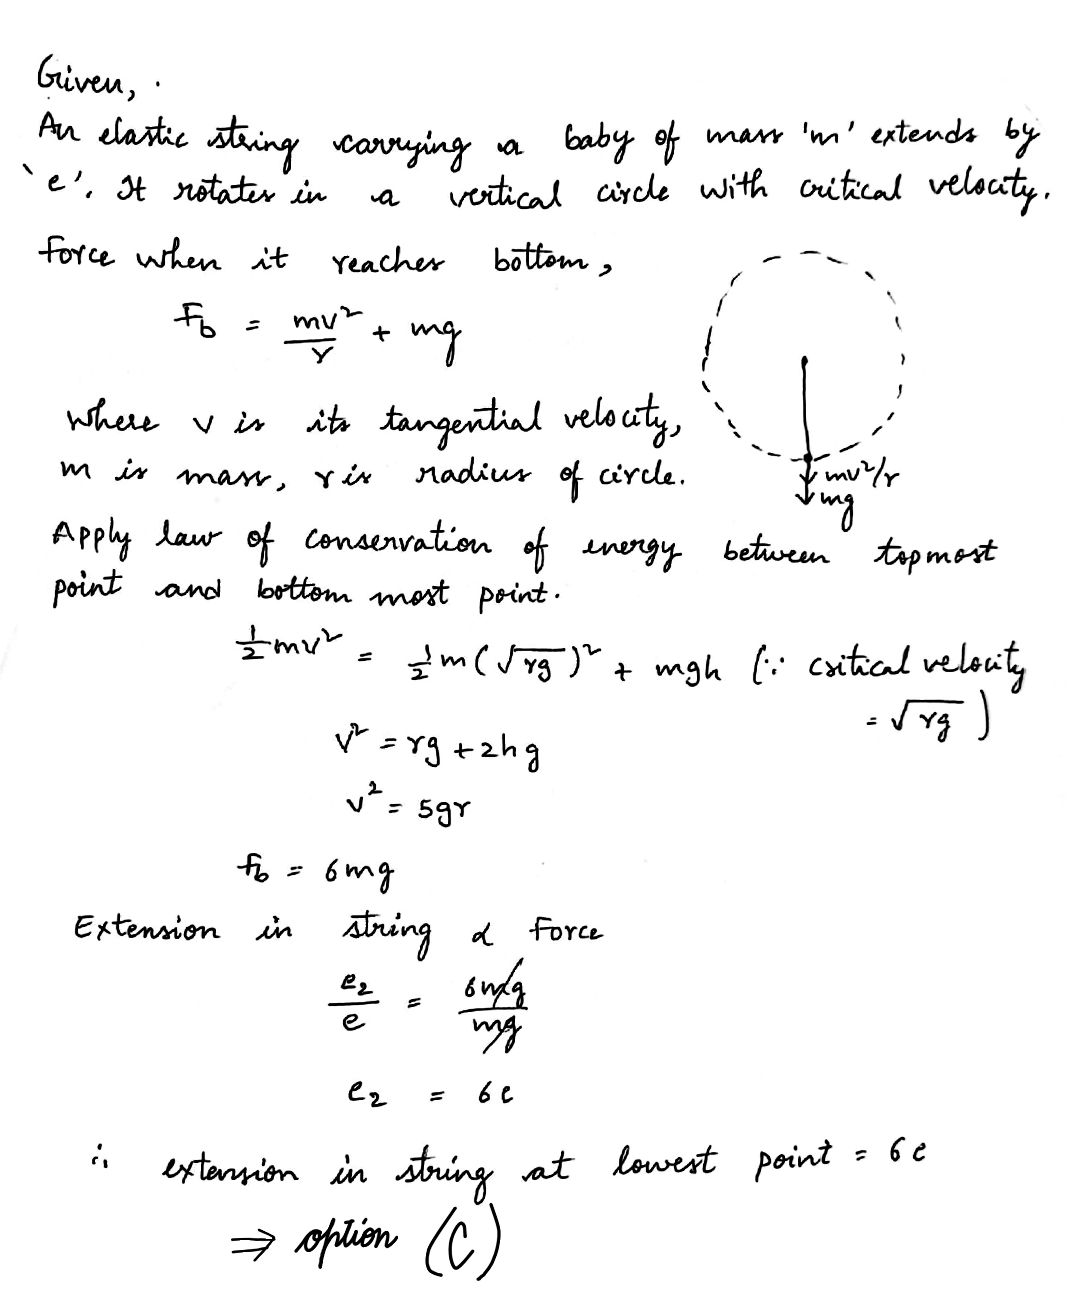 Given,
An elastic string carrying a baby of mass 'm' extends by
'e'. It rotates in a vertical circle with critical velocity.
Force when it reaches bottom,
F_b = mv²/r + mg
Where v is its tangential velocity,
m is mass, r is radius of circle.
mv²/r
mg
Apply law of conservation of energy between topmost
point and bottom most point.
½mv² = ½m(√rg)² + mgh (∵ critical velocity
= √rg)
v² = rg + 2hg
v² = 5gr
f_b = 6mg
Extension in string α Force
e₂/e = 6mg/mg
e₂ = 6e
∴ extension in string at lowest point = 6e
⇒ option (C)